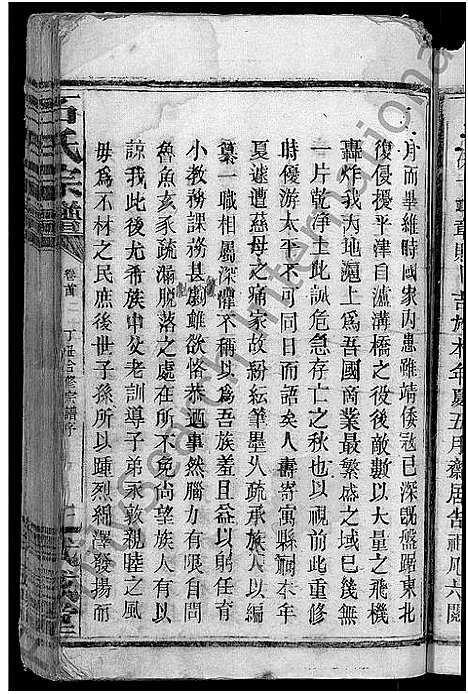 月而畢維時國家内患雖靖倭寇已深既盤踞東北
復侵擾平津自瀘溝橋之役後敵數以大量之飛機
轟炸我内地滬上爲吾國商業最繁盛之域已幾無
一片乾淨土此誠危急存亡之秋也以視前此重修
時優游太平不可同日而語矣人壽寄寓縣祠本年
夏遽遭慈母之痛家故紛紜筆墨久疏承族人以編
纂一職相屬深懼不稱以爲吾族羞且益以躬任育
小教務課務甚劇雖欲恪恭迺事然腦力有限自問
魯魚亥豕疏漏脫落之處在所不免尚望族人有以
諒我此後尤希族中父老訓導子弟永敦親睦之風
毋爲不材之民庶後世子孫所以踵烈綿澤發揚而
氏宗譜
卷首
丁丑合修宗譜序
本年夏五月齋居告祖凡六閱
mysearch International